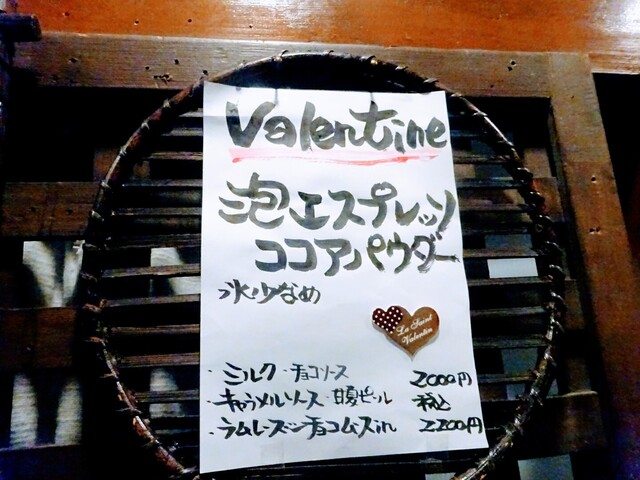 Valentine
泡エスプレッソ
ココアパウダー
氷少なめ
La Saint
Valentin
・ミルク・チョコソース 2000円
・キャラメルソース・甘夏ピール 税込
・ラムレーズンチョコムースin 2200円